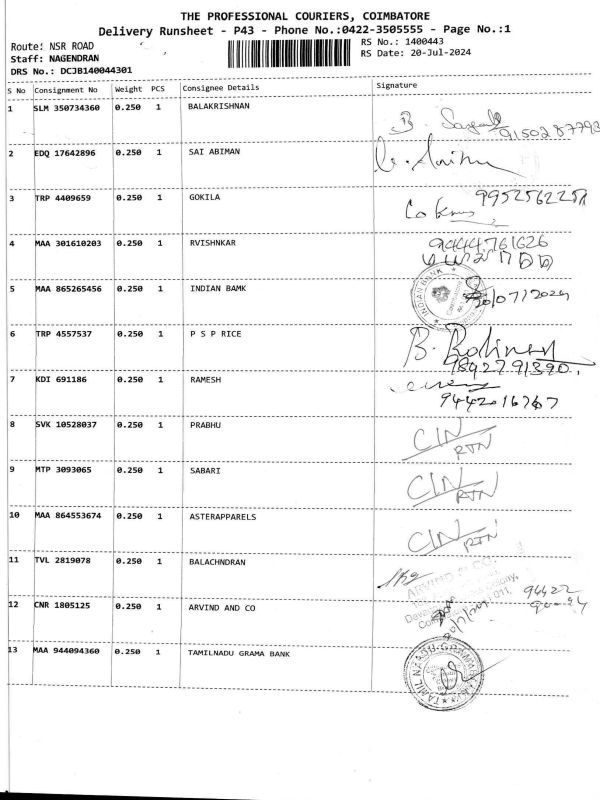 THE PROFESSIONAL COURIERS, COIMBATORE
Delivery Runsheet - P43 - Phone No.:0422-3505555 - Page No.:1
Route: NSR ROAD RS No.: 1400443
Staff: NAGENDRAN RS Date: 20-Jul-2024
DRS No.: DCJB140044301
S No Consignment No Weight PCS Consignee Details Signature
1 SLM 350734360 0.250 1 BALAKRISHNAN B.
9150287793
2 EDQ 17642896 0.250 1 SAI ABIMAN
3 TRP 4409659 0.250 1 GOKILA
4 MAA 301610203 0.250 1 RVISHNKAR 9444761626
5 MAA 865265456 0.250 1 INDIAN BAMK INDIAN BANK 20/07/2024
6 TRP 4557537 0.250 1 P S P RICE B.
9842791390
7 KDI 691186 0.250 1 RAMESH
9442016767
8 SVK 10528037 0.250 1 PRABHU CIN
RTN
9 MTP 3093065 0.250 1 SABARI CIN
RTN
10 MAA 864553674 0.250 1 ASTERAPPARELS CIN
RTN
11 TVL 2819078 0.250 1 BALACHNDRAN
ARVIND & CO.
12 CNR 1805125 0.250 1 ARVIND AND CO 94422
13 MAA 944094360 0.250 1 TAMILNADU GRAMA BANK